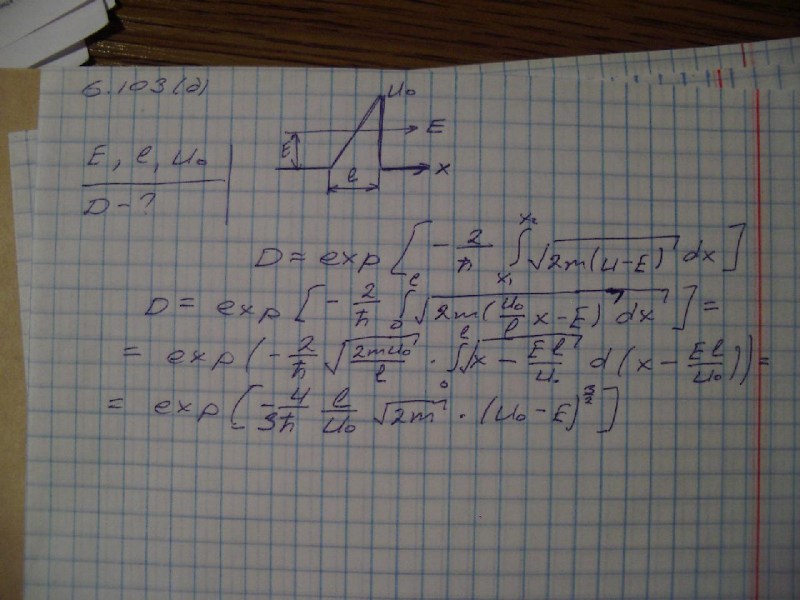 6.103(б)
U₀
E
E
x
l
E, l, U₀
D - ?
D ≈ exp [ - 2/ħ ∫_{x₁}^{x₂} √(2m(U-E)) dx ]
D = exp [ - 2/ħ ∫_0^l √(2m(U₀/l x - E)) dx ] =
= exp ( - 2/ħ √(2mU₀/l) · ∫_0^l √(x - El/U₀) d(x - El/U₀) ) =
= exp [ - 4/3ħ l/U₀ √2m · (U₀ - E)^{3/2} ]